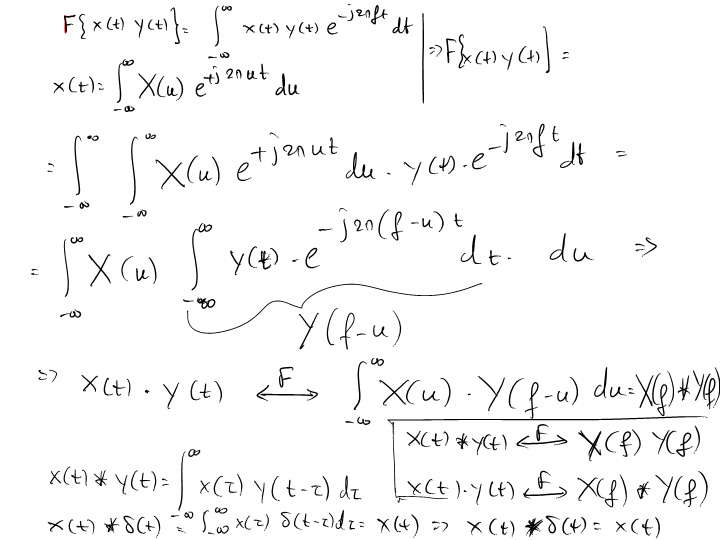 F{x(t) y(t)} = ∫_{-∞}^{∞} x(t) y(t) e^{-j2πft} dt | ⇒ F{x(t) y(t)} =
x(t) = ∫_{-∞}^{∞} X(u) e^{+j2πut} du
= ∫_{-∞}^{∞} ∫_{-∞}^{∞} X(u) e^{+j2πut} du · y(t) · e^{-j2πft} dt =
= ∫_{-∞}^{∞} X(u) ∫_{-∞}^{∞} y(t) · e^{-j2π(f-u)t} dt · du ⇒
Y(f-u)
⇒ x(t) · y(t) ⟷^{F} ∫_{-∞}^{∞} X(u) · Y(f-u) du = X(f) * Y(f)
x(t) * y(t) ⟷^{F} X(f) Y(f)
x(t) * y(t) = ∫_{-∞}^{∞} x(τ) y(t-τ) dτ
x(t) · y(t) ⟷^{F} X(f) * Y(f)
x(t) * δ(t) = ∫_{-∞}^{∞} x(τ) δ(t-τ) dτ = x(t) ⇒ x(t) * δ(t) = x(t)